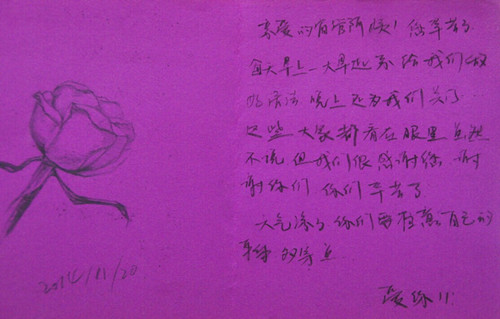 亲爱的宿管阿姨！您辛苦了
每天早上一大早起来给我们做
晚上还为我们关了
这些大家都看在眼里虽然
不说但我们很感谢您谢
谢你们你们辛苦了
天气冷了你们要注意自己的
身体
爱你!!
2014/11/20